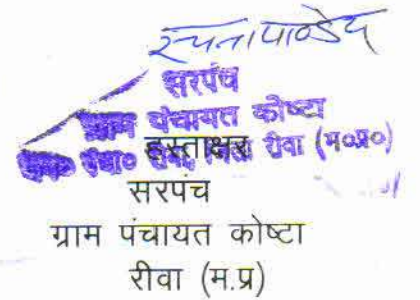 रचना पाण्डेय
सरपंच
ग्राम पंचायत कोष्टा
रीवा (म०प्र०)
हस्ताक्षर
सरपंच
ग्राम पंचायत कोष्टा
रीवा (म.प्र)